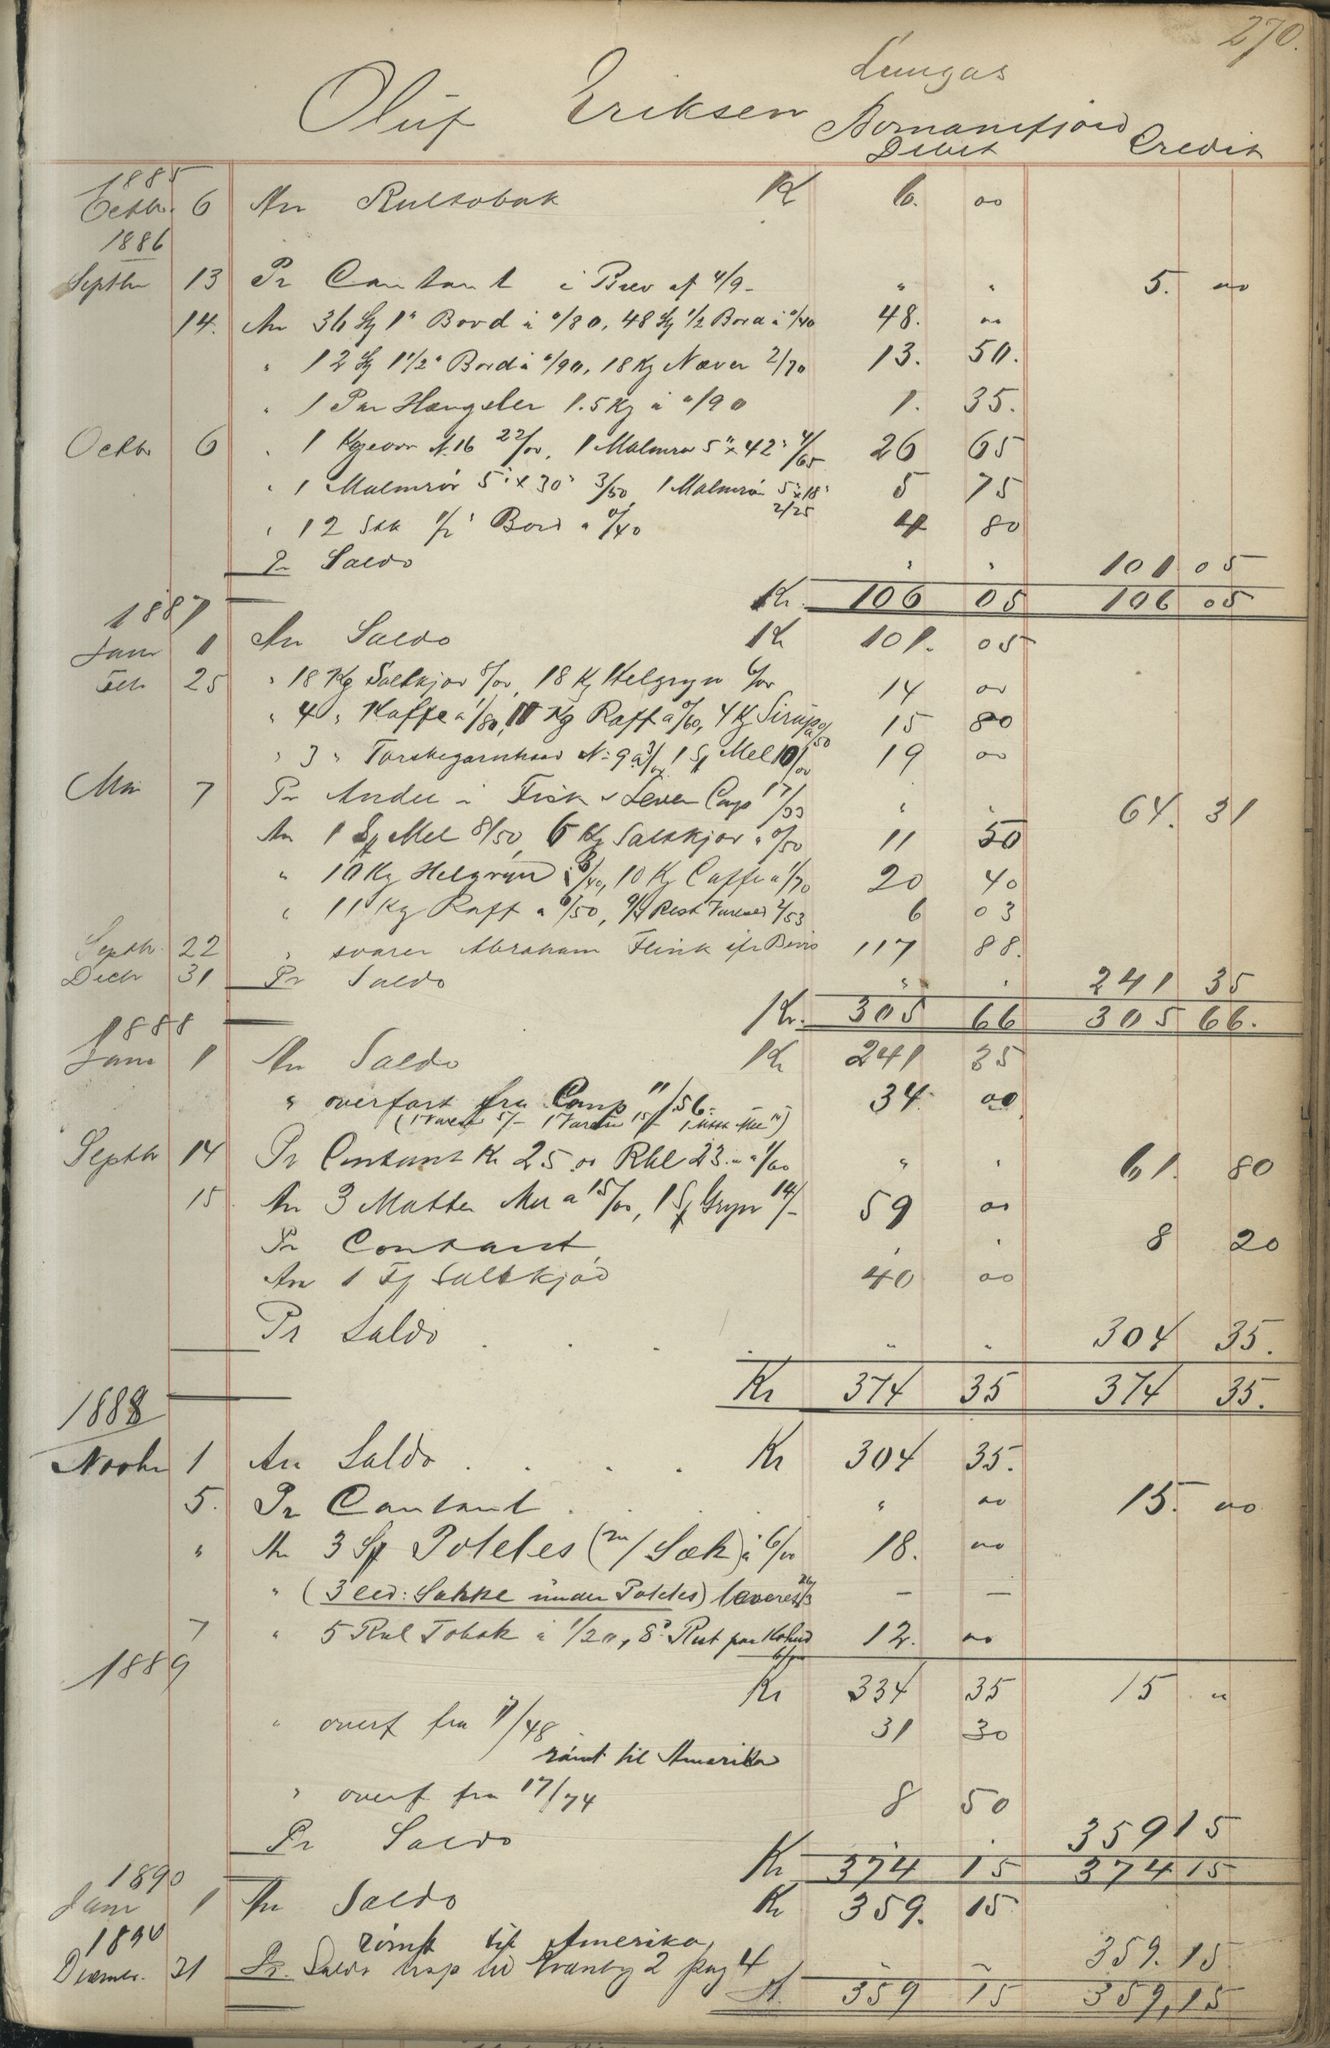 270.
Oluf Eriksen Lungas
Komanefjord
Debet Credit
1885
Octbr. 6 An Rultobak K 6. 00
1886
Septbr 13 Pr Contant i Brev af 4/9 - " " 5. 00
14. An 36 Sg 1" Bord à "/80, 48 Sg 1/2 Bord à "/40 48. 00
" 12 Sg 1 1/2" Bord à "/90, 18 Kg Næver 2/70 13. 50.
" 1 Par Hængsler 1.5 Kg à "/90 1. 35.
Octbr 6 " 1 N. 16 22/00, 1 Malmrør 5" x 42" 4/65 26 65
" 1 Malmrør 5" x 30" 3/50 1 Malmrør 5" x 18" 2/25 5 75
" 12 Stk 1/2" Bord à 0/40 4 80
Pr Saldo " " 101 05
Kr. 106 05 106 05
1887
Janr 1 An Saldo Kr 101. 05
Feb 25 " 18 Kg Saltkjød 8/00, 18 Kg Helgryn 6/00 14 00
" 4 " Kaffe à 1/80, 11 Kg Raff à 0/60, 4 Kg Sirup à 0/50 15 80
" 3 " Torskegarnhaar N: 9 à 3/00 1 Sg Mel 10/00 19 00
Mai 7 Pr Andel i Fisk & Lever Comp 17/33 " " 64. 31
An 1 Sg Mel 8/50, 6 Kg Saltkjød à 0/50 11 50
" 10 Kg Helgryn à 3/40, 10 Kg Caffe à 1/70 20 40
" 11 Kg Raff à 0/50, Rest 2/53 6 03
Septbr. 22 " svarer Abraham Flink ifr Bevis 117 88.
Decbr 31 Pr Saldo " " 241 35
Kr. 305 66 305 66.
1888
Janr 1 An Saldo Kr 241 35
" overført fra Comp "/56. 34 00
Septbr 14 Pr Contant Kr 25 00 Rbl 23 " à 1/60 " " 61. 80
15. An 3 Matter Mel à 15/00, 1 Sg Gryn 14/- 59 00
Pr Contant " " 8 20
An 1 Fj Saltkjød 40 00
Pr Saldo . . . " " 304 35.
Kr 374 35 374 35.
1888
Novbr 1 An Saldo . . . . Kr 304 35.
5. Pr Contant . . . " 00 15. 00
" An 3 Sg Poteter (m/Sæk) à 6/00 18. 00
" (3 Sække under Poteter) leveres - -
7 " 5 Rul Tobak à 1/20, Rest paa Kohud 6/00 12. 00
1889
Kr 334 35 15 "
" overf fra 17/48 31 30
rømt til Amerika
" overf fra 17/74 8 50
Pr Saldo " " 359 15
Kr 374 15 374 15
1890
Janr 1 An Saldo Kr 359. 15
1890 rømt til Amerika
Decembr. 31 Pr. Saldo trsp til 2 pag 4 " " 359. 15
359 15 359, 15